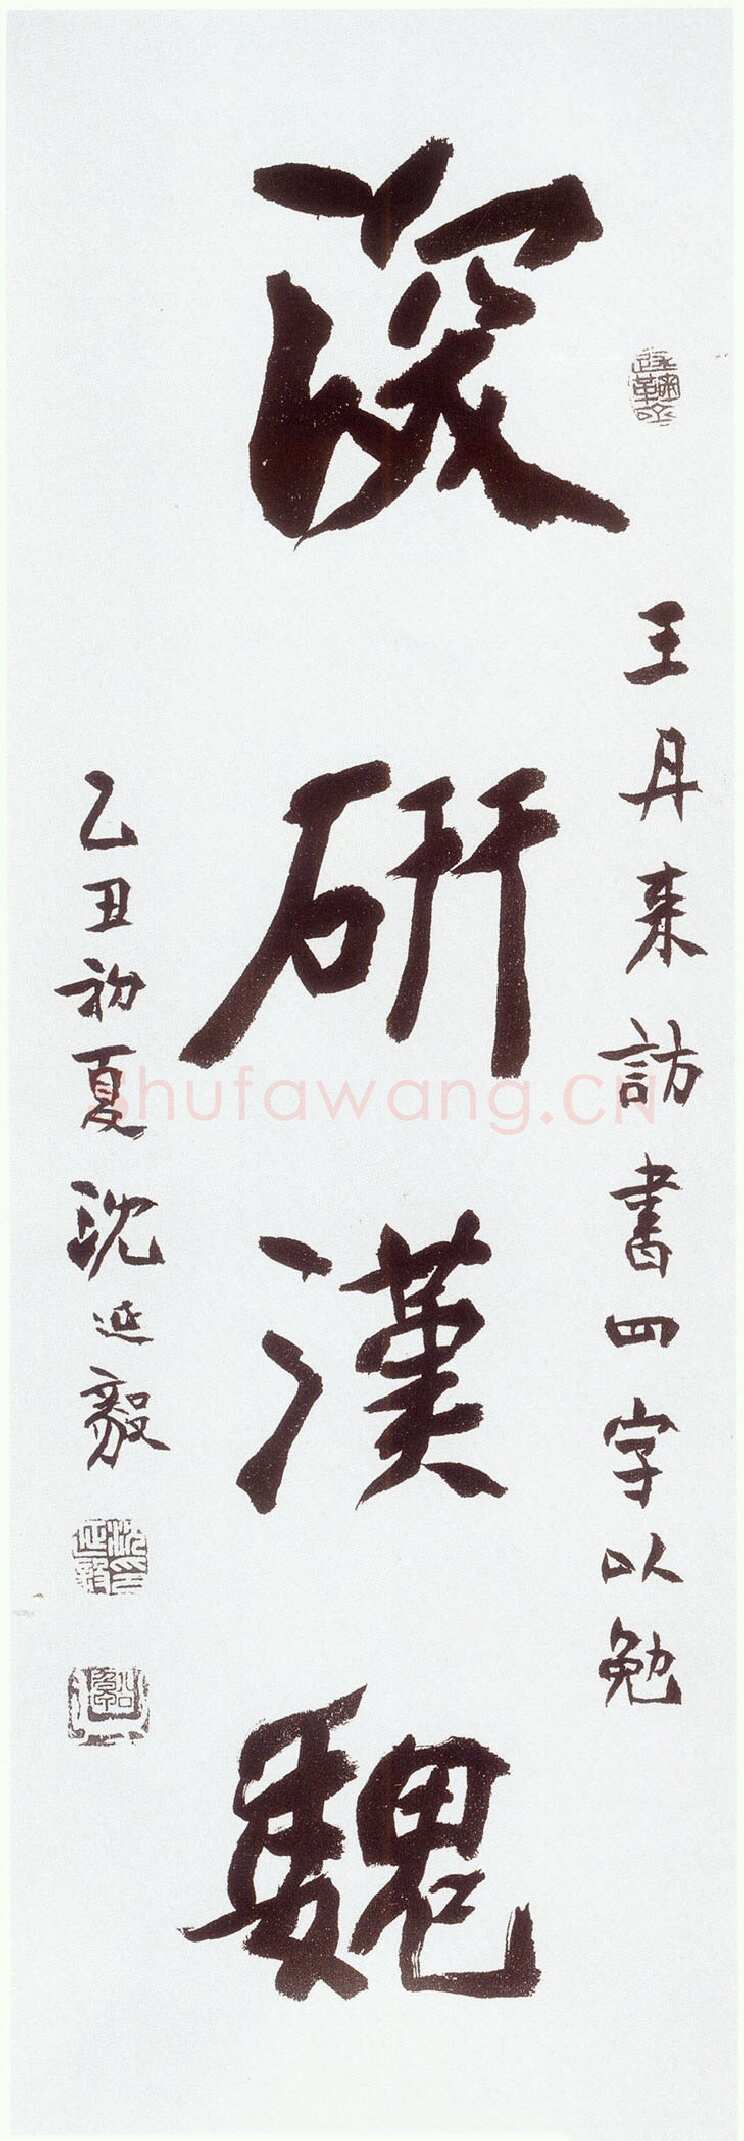 王丹来訪書四字以勉
深研漢魏
乙丑初夏沈延毅
沈延毅印
shufawang.CN